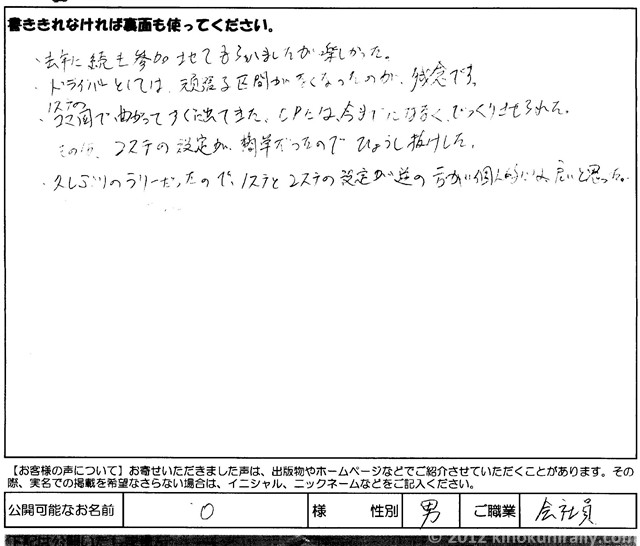 書ききれなければ裏面も使ってください。
・去年に続き参加させてもらいましたが楽しかった。
・ドライバーとしては、頑張る区間がなくなったのが、残念です。
1ステの
・コマ図で曲がってすぐに出てきた、CPには、今までになく、びっくりさせられた。
その後、2ステの設定が、簡単だったのでひょうし抜けした。
・久しぶりのラリーだったので、1ステと2ステの設定が逆の方がいい個人的には良いと思った。
【お客様の声について】お寄せいただきました声は、出版物やホームページなどでご紹介させていただくことがあります。その
際、実名での掲載を希望なさらない場合は、イニシャル、ニックネームなどをご記入ください。
公開可能なお名前 O 様 性別 男 ご職業 会社員
© 2012 kinokunirally.com